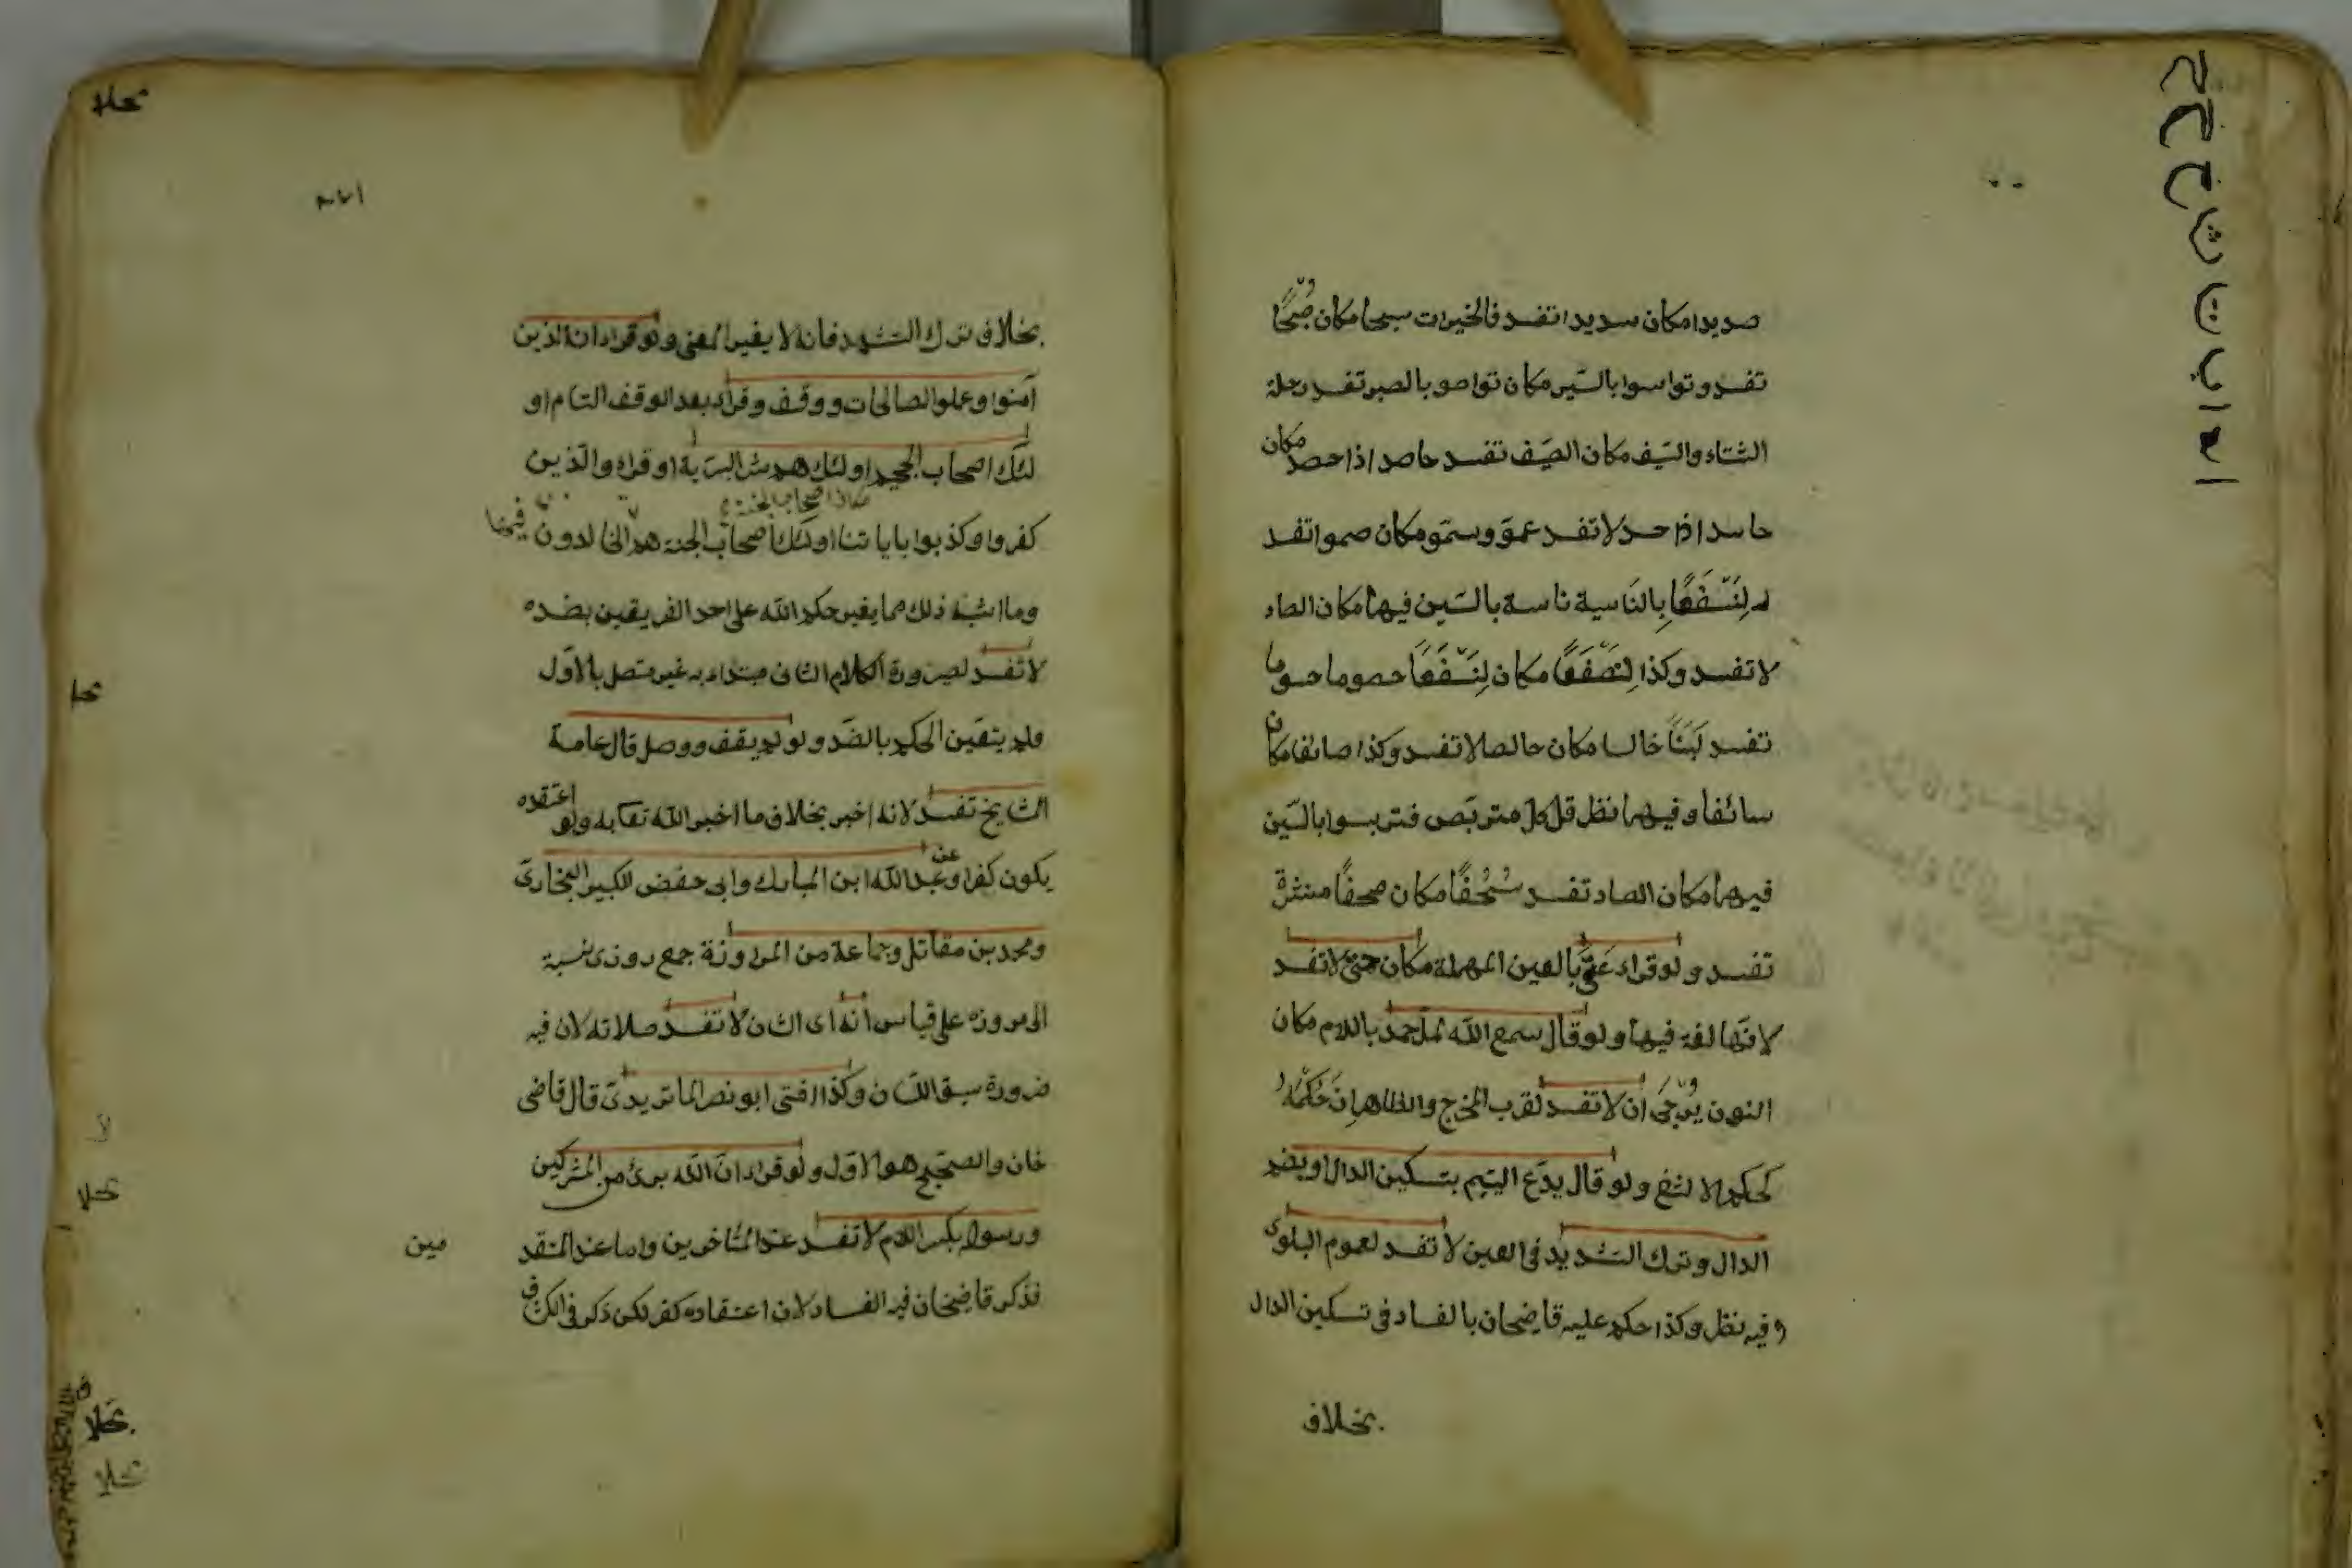 صديدا مكان سديدا تفسد فالخيرات سبحا مكان صُبْحًا
تفسد وتواسوا بالسّبر مكان تواصو بالصبر تفسد رحلة
الشتاء والسّيف مكان الصّيف تفسد حاصد اذا حصد مكان
حاسد اذا حسد لا تفسد عموَّ وسمّو مكان صموا تفسد
لنَسْفَعًا بالنّاسية ناسة بالسّين فيها مكان الصاد
لا تفسد وكذا لنَصْفَعًا مكان لنَسْفَعًا حصوما حسوما
تفسد لَبَنًا خالسا مكان خالصا لا تفسد وكذا صائغا مكان
سائغا وفيهما نظر قل كل متربّص فتربسوا بالسّين
فيهما مكان الصاد تفسد سُحُفًا مكان صحفًا منشرة
تفسد ولو قراء عَتّى بالعين المهملة مكان حتى لا تفسد
لانّها لغة فيها ولو قال سمع الله لمل حمد باللام مكان
النون يُرْجَى ان لا تفسد لقرب المخرج والظاهر انّ حُكْمَهُ
كحكم الالثغ ولو قال يدَع اليتيم بتسكين الدال او بضم
الدال وترك التشديد في العين لا تفسد لعموم البلوى
وفيه نظر وكذا حكم عليه قاضيخان بالفساد في تسكين الدال
بخلاف
بخلاف ترك التشهد فانه لا يغير المعنى ولو قراء ان الذين
آمنوا وعملوا الصالحات ووقف وقراء بعد الوقف التام او
لئك اصحاب الجحيم اولئك هم شر البريّة او قراء والذين
مكان اصحاب الجنة
كفروا وكذبوا باياتنا اولئك اصحاب الجنة هم الخالدون فيها
وما اشبه ذلك مما يغير حكم الله على احد الفريقين بضده
لا تفسد لصيرورة الكلام الثانى مبتداء به غير متصل بالاوّل
ولم يتعين الحكم بالضّد ولو لم يقف ووصل قال عامة
المشايخ تفسد لانه اخبر بخلاف ما اخبر الله تعا به ولو اعتقده
يكون كفرا وعن عبد الله ابن المبارك وابى حفص الكبير البخارىّ
ومحمد بن مقاتل وجماعة من المراوزة جمع روزى نسبة
الى مروزه على قياس انه اى الشان لا تفسد صلاته لان فيه
ضرورة سبق اللسان وكذا افتى ابو نصر الماتريدىّ قال قاضى
خان والصحيح هو الاوّل ولو قراء انّ الله برئ من المشركين
ورسوله بكسر اللام لا تفسد عند المتأخرين واما عند المتقد
مين
فذكر قاضيخان فيه الفساد لان اعتقاده كفر لكن ذكر في الكشاف
ا ب ت ث ج ح خ